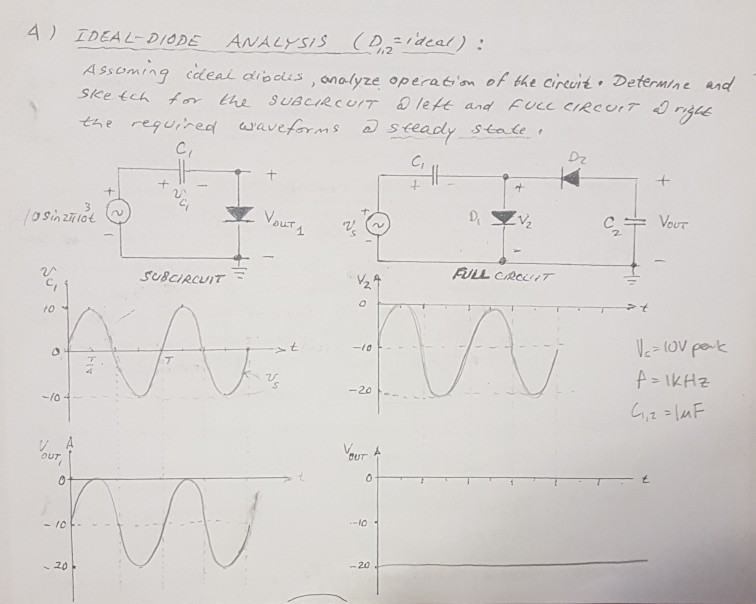 4) IDEAL-DIODE ANALYSIS (D1,2=ideal):
Assuming ideal diodes, analyze operation of the circuit. Determine and
sketch for the SUBCIRCUIT @ left and FULL CIRCUIT @ right
the required waveforms @ steady state.
C1
+ vC1 -
+
10 sin2π10³t
-
+
VOUT1
-
SUBCIRCUIT
C1
+ -
D2
+
vs
-
D1
+
V2
-
C2
+
VOUT
-
FULL CIRCUIT
vC1
10
0
-10
T/4
T
t
vs
V2
0
-10
-20
t
Vs=10V peak
f=1kHz
C1,2=1uF
VOUT1
0
-10
-20
t
VOUT
0
-10
-20
t